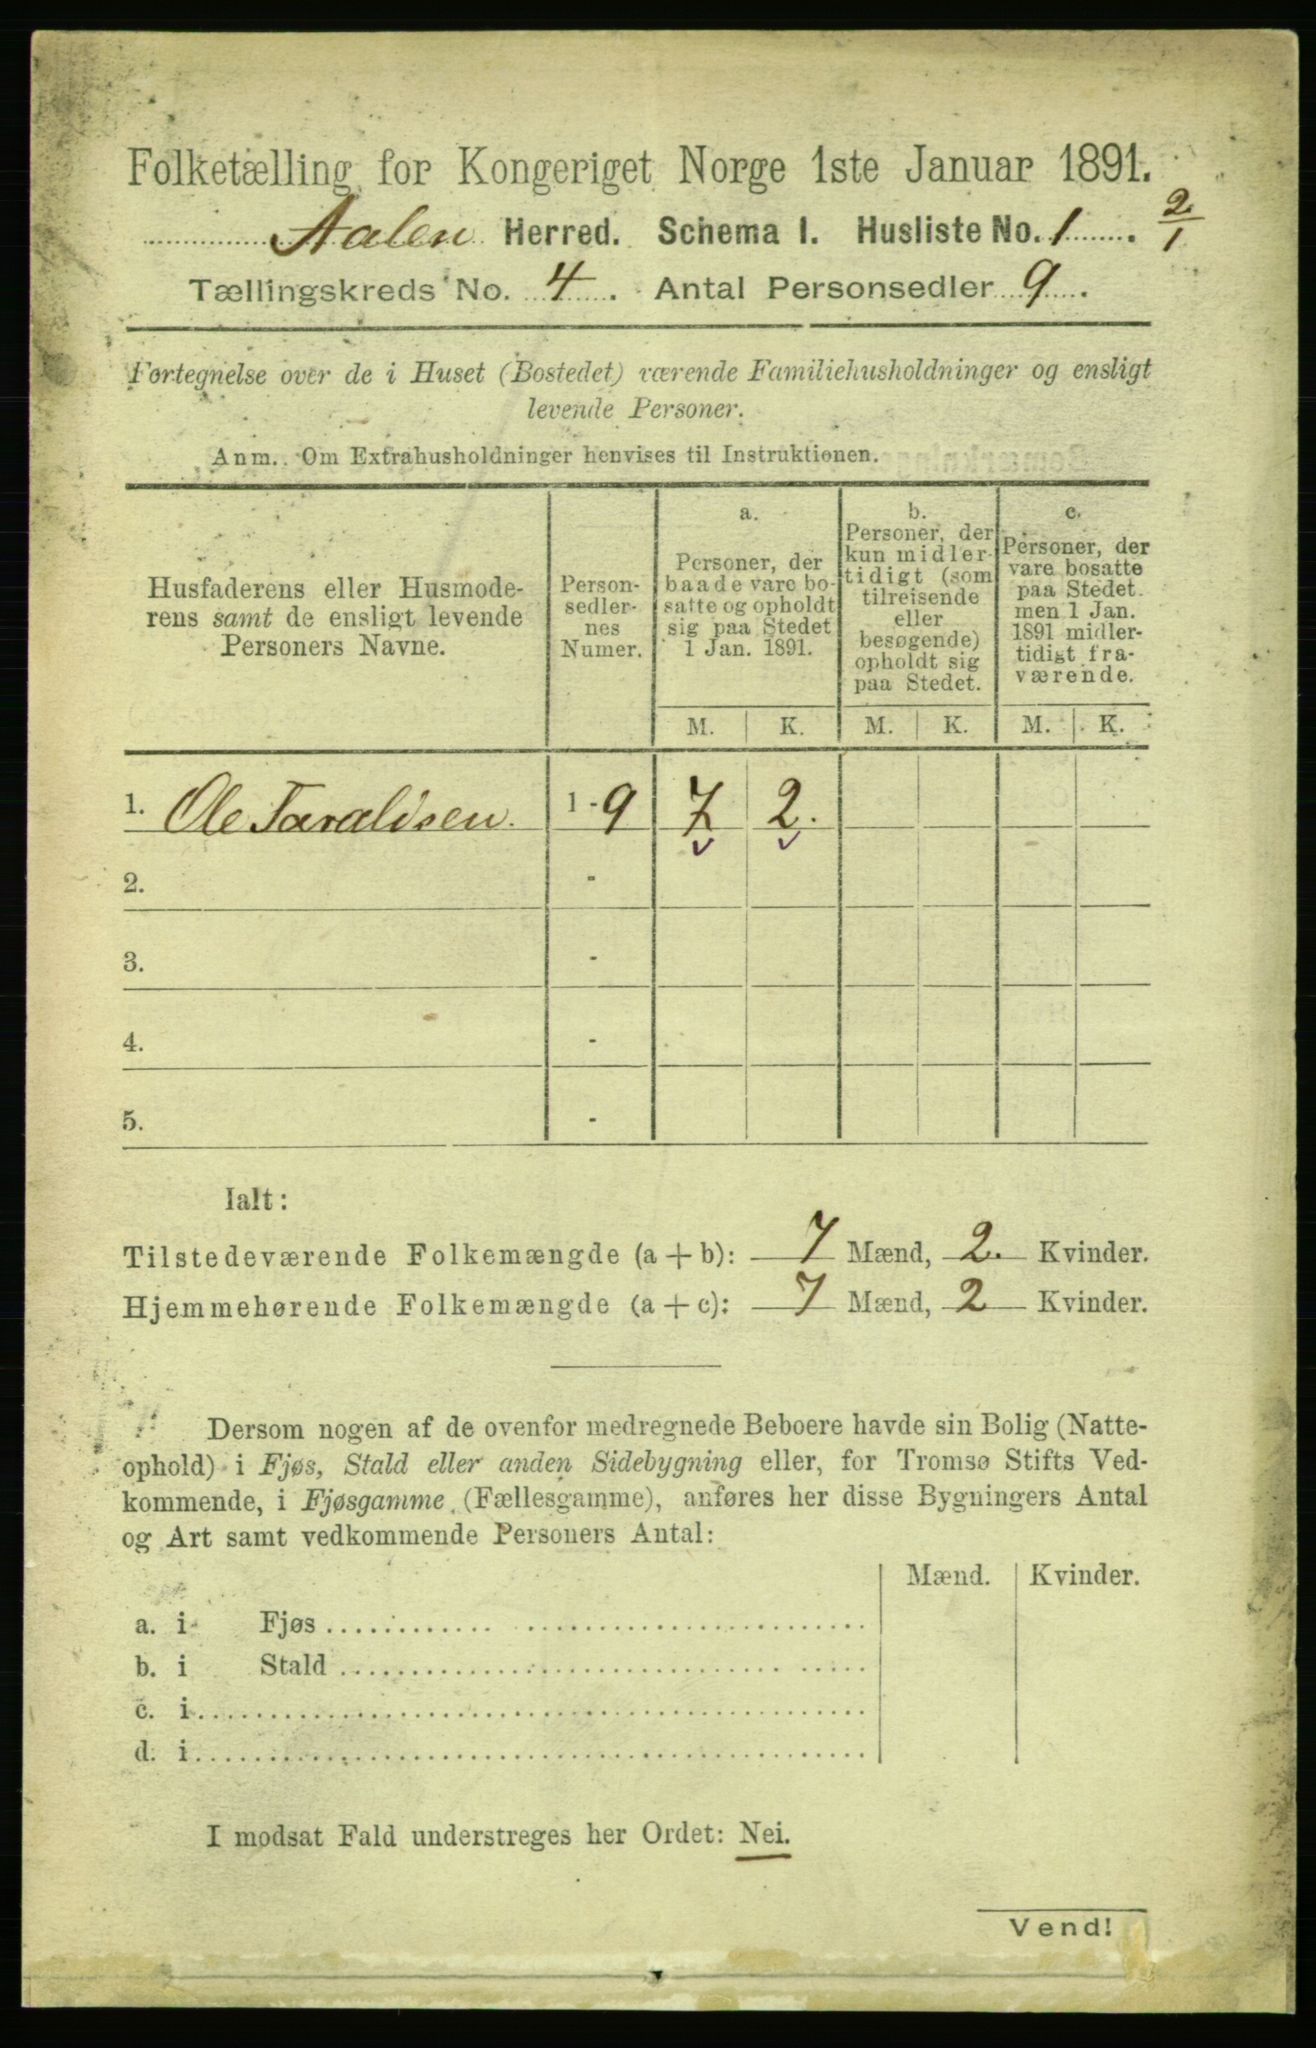 Folketælling for Kongeriget Norge 1ste Januar 1891.
Aalen Herred. Schema I. Husliste No. 1. 2/1
Tællingskreds No. 4. Antal Personsedler 9.
Fortegnelse over de i Huset (Bostedet) værende Familiehusholdninger og ensligt
levende Personer.
Anm. Om Extrahusholdninger henvises til Instruktionen.
Husfaderens eller Husmode-
rens samt de ensligt levende
Personers Navne.
Person-
sedler-
nes
Numer.
a.
Personer, der
baade vare bo-
satte og opholdt
sig paa Stedet
1 Jan. 1891.
b.
Personer, der
kun midler-
tidigt (som
tilreisende
eller
besøgende)
opholdt sig
paa Stedet.
c.
Personer, der
vare bosatte
paa Stedet
men 1 Jan.
1891 midler-
tidigt fra-
værende.
M. K. M. K. M. K.
1. Ole Taraldsen. 1 - 9 7 2.
2. -
3. -
4. -
5. -
Ialt:
Tilstedeværende Folkemængde (a + b): 7 Mænd, 2. Kvinder.
Hjemmehørende Folkemængde (a + c): 7 Mænd, 2 Kvinder.
Dersom nogen af de ovenfor medregnede Beboere havde sin Bolig (Natte-
ophold) i Fjøs, Stald eller anden Sidebygning eller, for Tromsø Stifts Ved-
kommende, i Fjøsgamme (Fællesgamme), anføres her disse Bygningers Antal
og Art samt vedkommende Personers Antal:
Mænd. Kvinder.
a. i Fjøs
b. i Stald
c. i
d. i
I modsat Fald understreges her Ordet: Nei.
Vend!